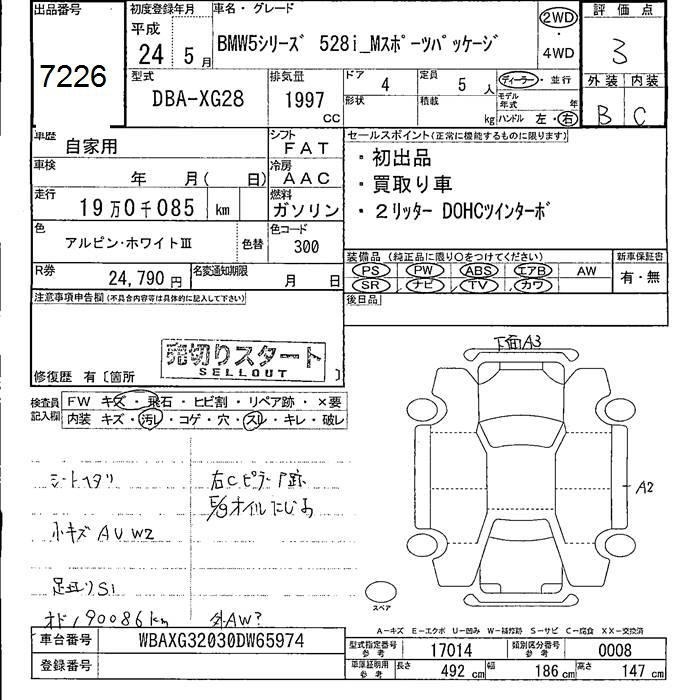 出品番号
7226
初度登録年月
平成
24 5 月
車名・グレード
BMW5シリーズ 528i_Mスポーツパッケージ
2WD
・
4WD
評価点
3
外装 内装
B C
型式
DBA-XG28
排気量
1997
CC
ドア
4
定員
5 人
ディーラー・並行
形状
積載
kg
モデル年式
年
ハンドル 左・右
車歴
自家用
シフト
FAT
車検
年 月( 日)
冷房
AAC
走行
19万0千085 km
燃料
ガソリン
色
アルピン・ホワイトⅢ
色替
色コード
300
R券
24,790 円
名変通知期限
月 日
セールスポイント(正常に機能するものに限ります)
・初出品
・買取り車
・2リッター DOHCツインターボ
装備品(純正品に限り○をつけてください)
PS PW ABS エアB AW
SR ナビ TV カワ
新車保証書
有・無
後日品
注意事項申告欄(不具合内容等は具体的に記入して下さい)
売切りスタート
SELLOUT
修復歴 有〔箇所 〕
検査員記入欄
FW キズ・飛石・ヒビ割・リペア跡・×要
内装 キズ・汚レ・コゲ・穴・スレ・キレ・破レ
シートヘタリ
右Cピラー下跡
E/gオイルにじみ
小キズ AUW2
足廻りS1
オド190086km
外AW?
下面A3
A2
スペア
A―キズ E―エクボ U―凹み W―補修跡 S―サビ C―腐食 XX―交換済
車台番号
WBAXG32030DW65974
登録番号
型式指定番号
参考
17014
類別区分番号
参考
0008
車庫証明用
参考
長さ
492 cm
幅
186 cm
高さ
147 cm